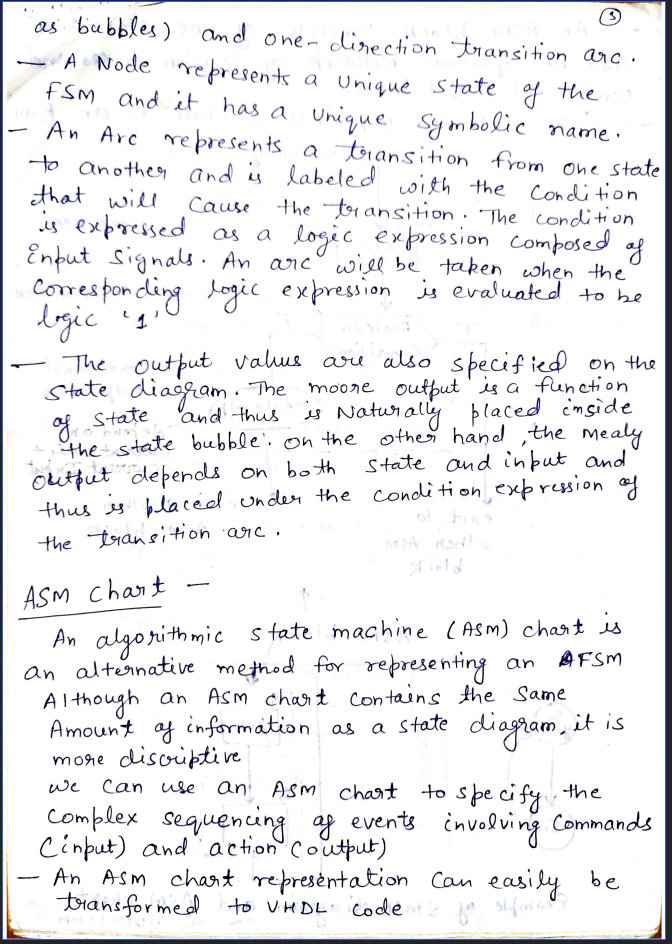 3
as bubbles) and one-direction transition arc.
— A Node represents a unique state of the
FSM and it has a unique symbolic name.
— An Arc represents a transition from one state
to another and is labeled with the condition
that will cause the transition. The condition
is expressed as a logic expression composed of
input signals. An arc will be taken when the
corresponding logic expression is evaluated to be
logic '1'
— The output valus are also specified on the
state diagram. The moore output is a function
of state and thus is Naturally placed inside
the state bubble. on the other hand, the mealy
output depends on both state and input and
thus is placed under the condition expression of
the transition arc.
ASM chart —
An algorithmic state machine (ASM) chart is
an alternative method for representing an FSM
Although an ASM chart contains the same
Amount of information as a state diagram, it is
more discriptive
we can use an ASM chart to specify the
complex sequencing of events involving commands
(input) and action (output)
— An ASM chart representation can easily be
transformed to VHDL code